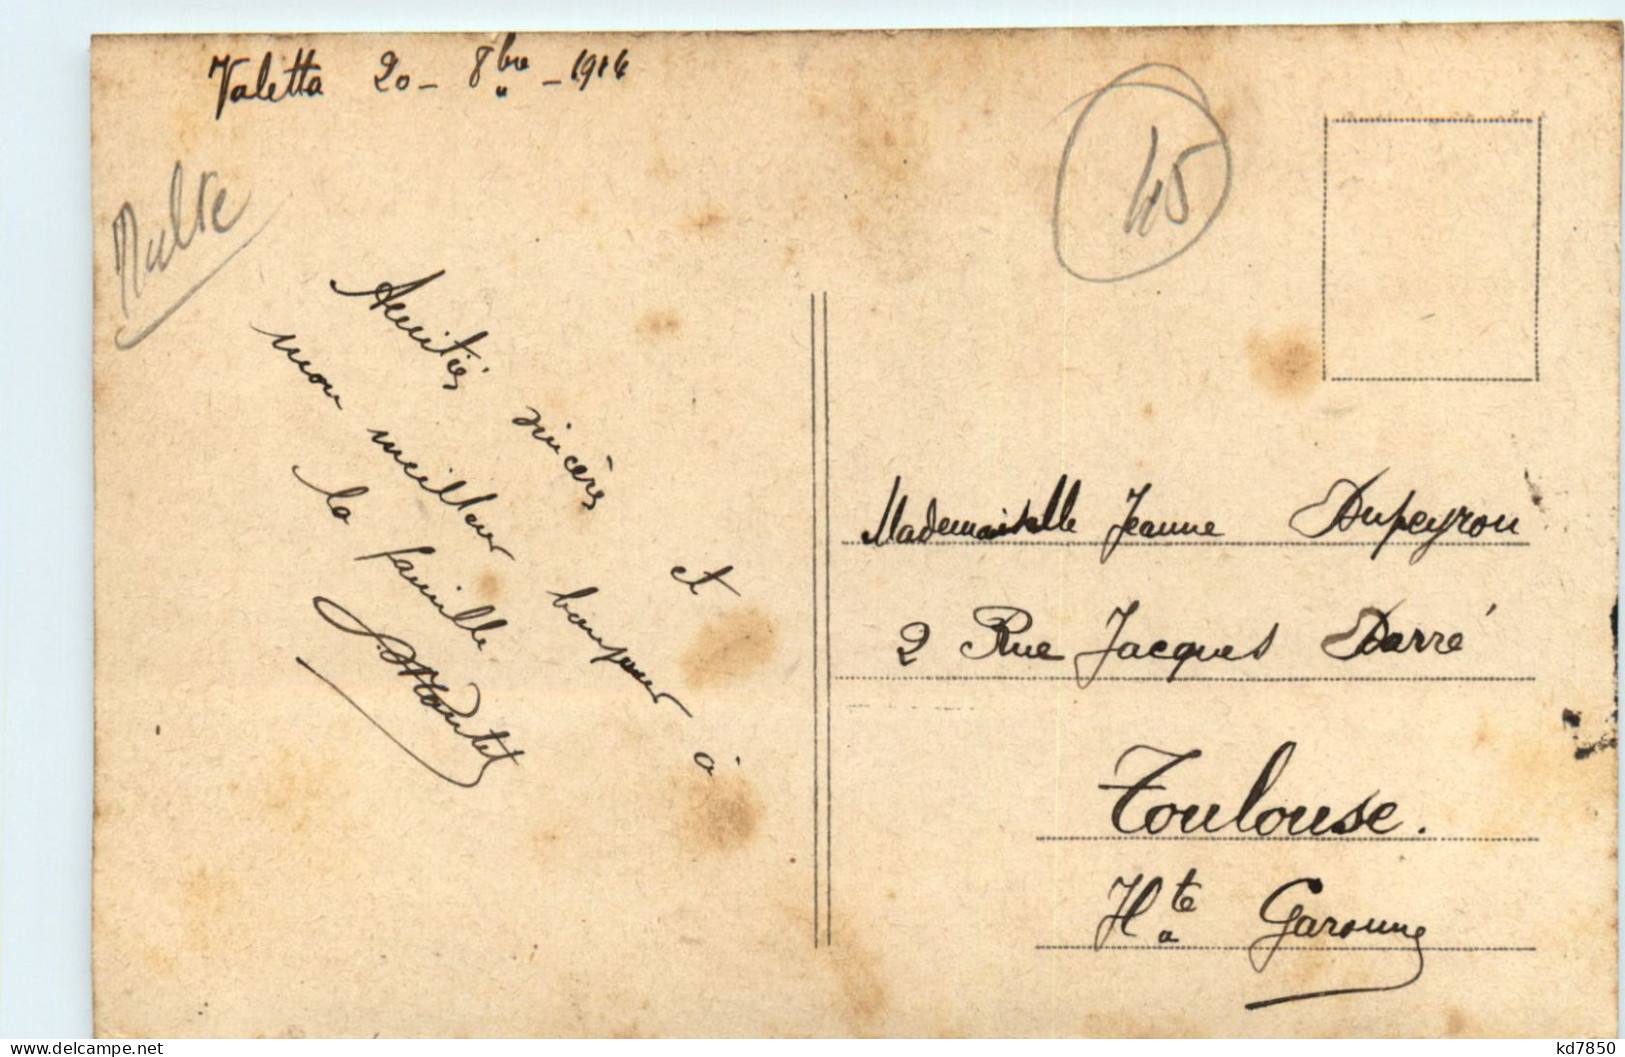 Valetta 20 - 8bre - 1914
Malte
45
Amitiés sincères et
mon meilleur bonjour à
la famille
Mademoiselle Jeanne Dupeyron
2 Rue Jacques Darré
Toulouse.
Hte Garonne
kd7850